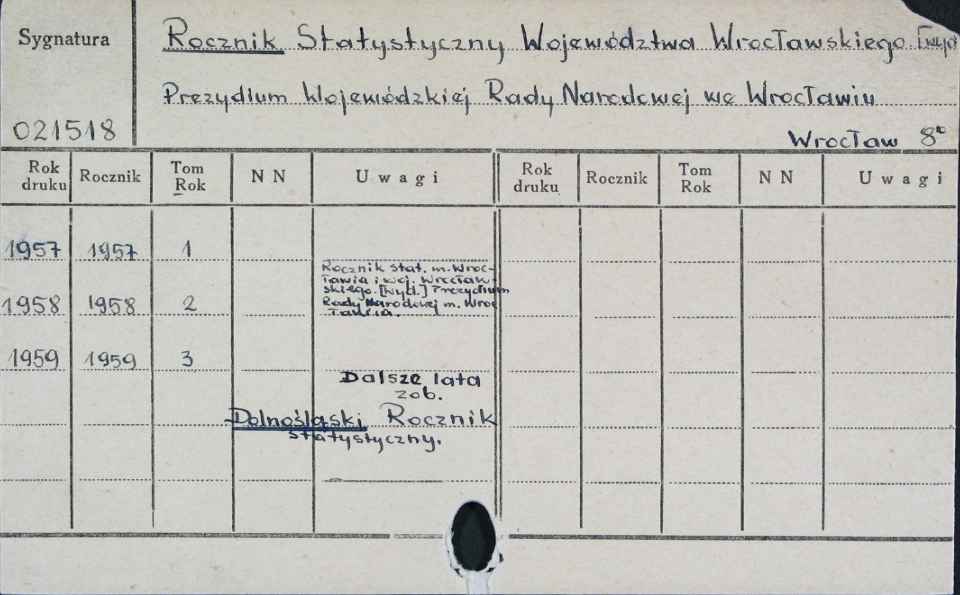 Sygnatura
Rocznik Statystyczny Województwa Wrocławskiego.
Prezydium Wojewódzkiej Rady Narodowej we Wrocławiu
021518
Wrocław 8°
Rok druku Rocznik Tom Rok N N Uwagi Rok druku Rocznik Tom Rok N N Uwagi
1957 1957 1
Rocznik stat. m. Wroc-
ławia i woj. Wrocław-
skiego. [Wyd.] Prezydium
1958 1958 2 Rady Narodowej m. Wroc
ławia.
1959 1959 3
Dalsze lata
zob.
Dolnośląski Rocznik
statystyczny.